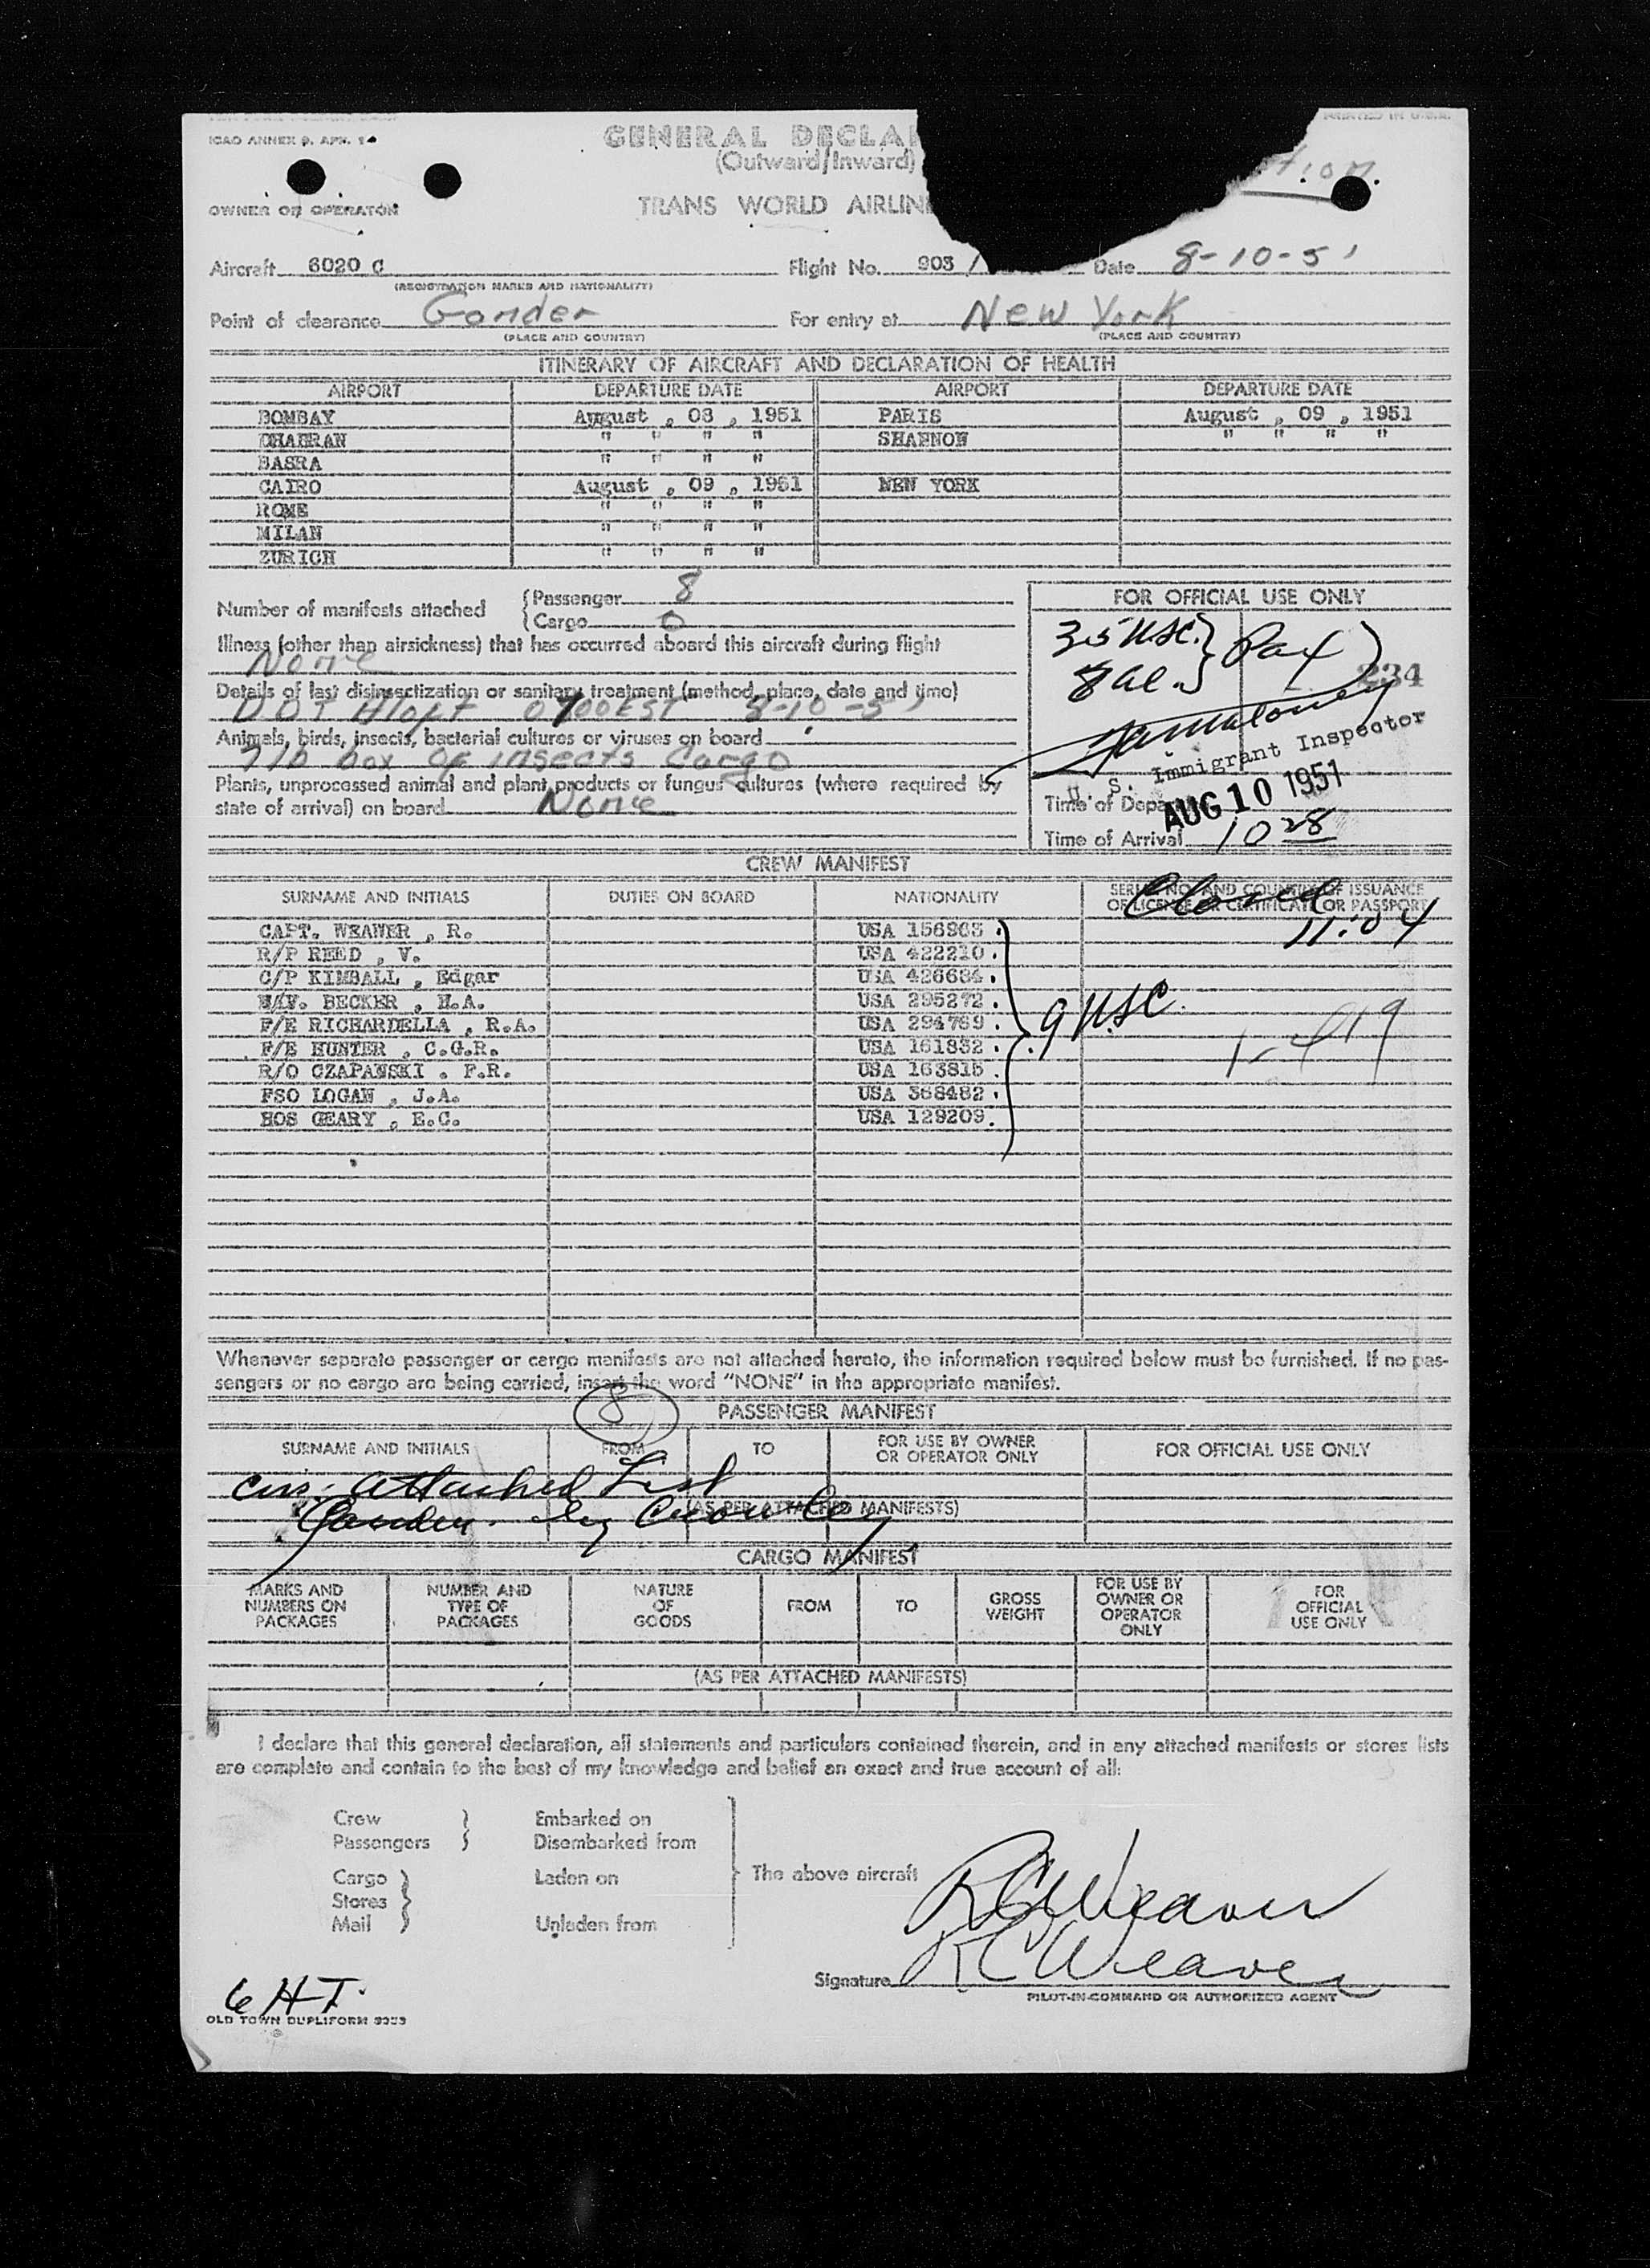 ICAO ANNEX 9, APR.
GENERAL DECLA
(Outward/Inward)
OWNER OR OPERATOR
TRANS WORLD AIRLIN
Aircraft 6020 C Flight No. 903 / Date 8-10-51
(REGISTRATION MARKS AND NATIONALITY)
Point of clearance Gander For entry at New York
(PLACE AND COUNTRY) (PLACE AND COUNTRY)
ITINERARY OF AIRCRAFT AND DECLARATION OF HEALTH
AIRPORT DEPARTURE DATE AIRPORT DEPARTURE DATE
BOMBAY August , 08 , 1951 PARIS August , 09 , 1951
DHAHRAN " " " " SHANNON " " " "
BASRA " " " "
CAIRO August , 09 , 1951 NEW YORK
ROME " " " "
MILAN " " " "
ZURICH " " " "
Number of manifests attached { Passenger 8
{ Cargo 0
FOR OFFICIAL USE ONLY
35 USC. } Pax
8 al.
234
Illness (other than airsickness) that has occurred aboard this aircraft during flight
None
Details of last disinsectization or sanitary treatment (method, place, date and time)
DDT Aloft 0700EST 8-10-51
Animals, birds, insects, bacterial cultures or viruses on board
7 lb box of insects Cargo
Plants, unprocessed animal and plant products or fungus cultures (where required by
state of arrival) on board None
U. S. Immigrant Inspector
Time of Depar
AUG 10 1951
Time of Arrival 10 28
CREW MANIFEST
SURNAME AND INITIALS DUTIES ON BOARD NATIONALITY SERIAL NO. AND COUNTRY OF ISSUANCE
OF LICENSE OR CERTIFICATE OR PASSPORT
Cleared
11:04
CAPT. WEAWER , R. USA 156963 .
R/P REED , V. USA 422210 .
C/P KIMBALL , Edgar USA 426684 .
BECKER , H.A. USA 295272 .
F/E RICHARDELLA , R.A. USA 294769 .
F/E HUNTER , C.G.R. USA 161832 .
R/O CZAPANSKI . F.R. USA 163815 .
FSO LOGAN , J.A. USA 368482 .
HOS GEARY , E.C. USA 129209 .
9 USC
Whenever separate passenger or cargo manifests are not attached hereto, the information required below must be furnished. If no pas-
sengers or no cargo are being carried, insert the word "NONE" in the appropriate manifest.
8
PASSENGER MANIFEST
SURNAME AND INITIALS FROM TO FOR USE BY OWNER
OR OPERATOR ONLY FOR OFFICIAL USE ONLY
attached List
(AS PER ATTACHED MANIFESTS)
Gander. by Crowley
CARGO MANIFEST
MARKS AND
NUMBERS ON
PACKAGES
NUMBER AND
TYPE OF
PACKAGES
NATURE
OF
GOODS
FROM
TO
GROSS
WEIGHT
FOR USE BY
OWNER OR
OPERATOR
ONLY
FOR
OFFICIAL
USE ONLY
(AS PER ATTACHED MANIFESTS)
I declare that this general declaration, all statements and particulars contained therein, and in any attached manifests or stores lists
are complete and contain to the best of my knowledge and belief an exact and true account of all:
Crew } Embarked on
Passengers } Disembarked from
Cargo } Laden on The above aircraft
Stores
Mail Unladen from
RC Weaver
Signature RC Weaver
PILOT-IN-COMMAND OR AUTHORIZED AGENT
6 HT.
OLD TOWN DUPLIFORM